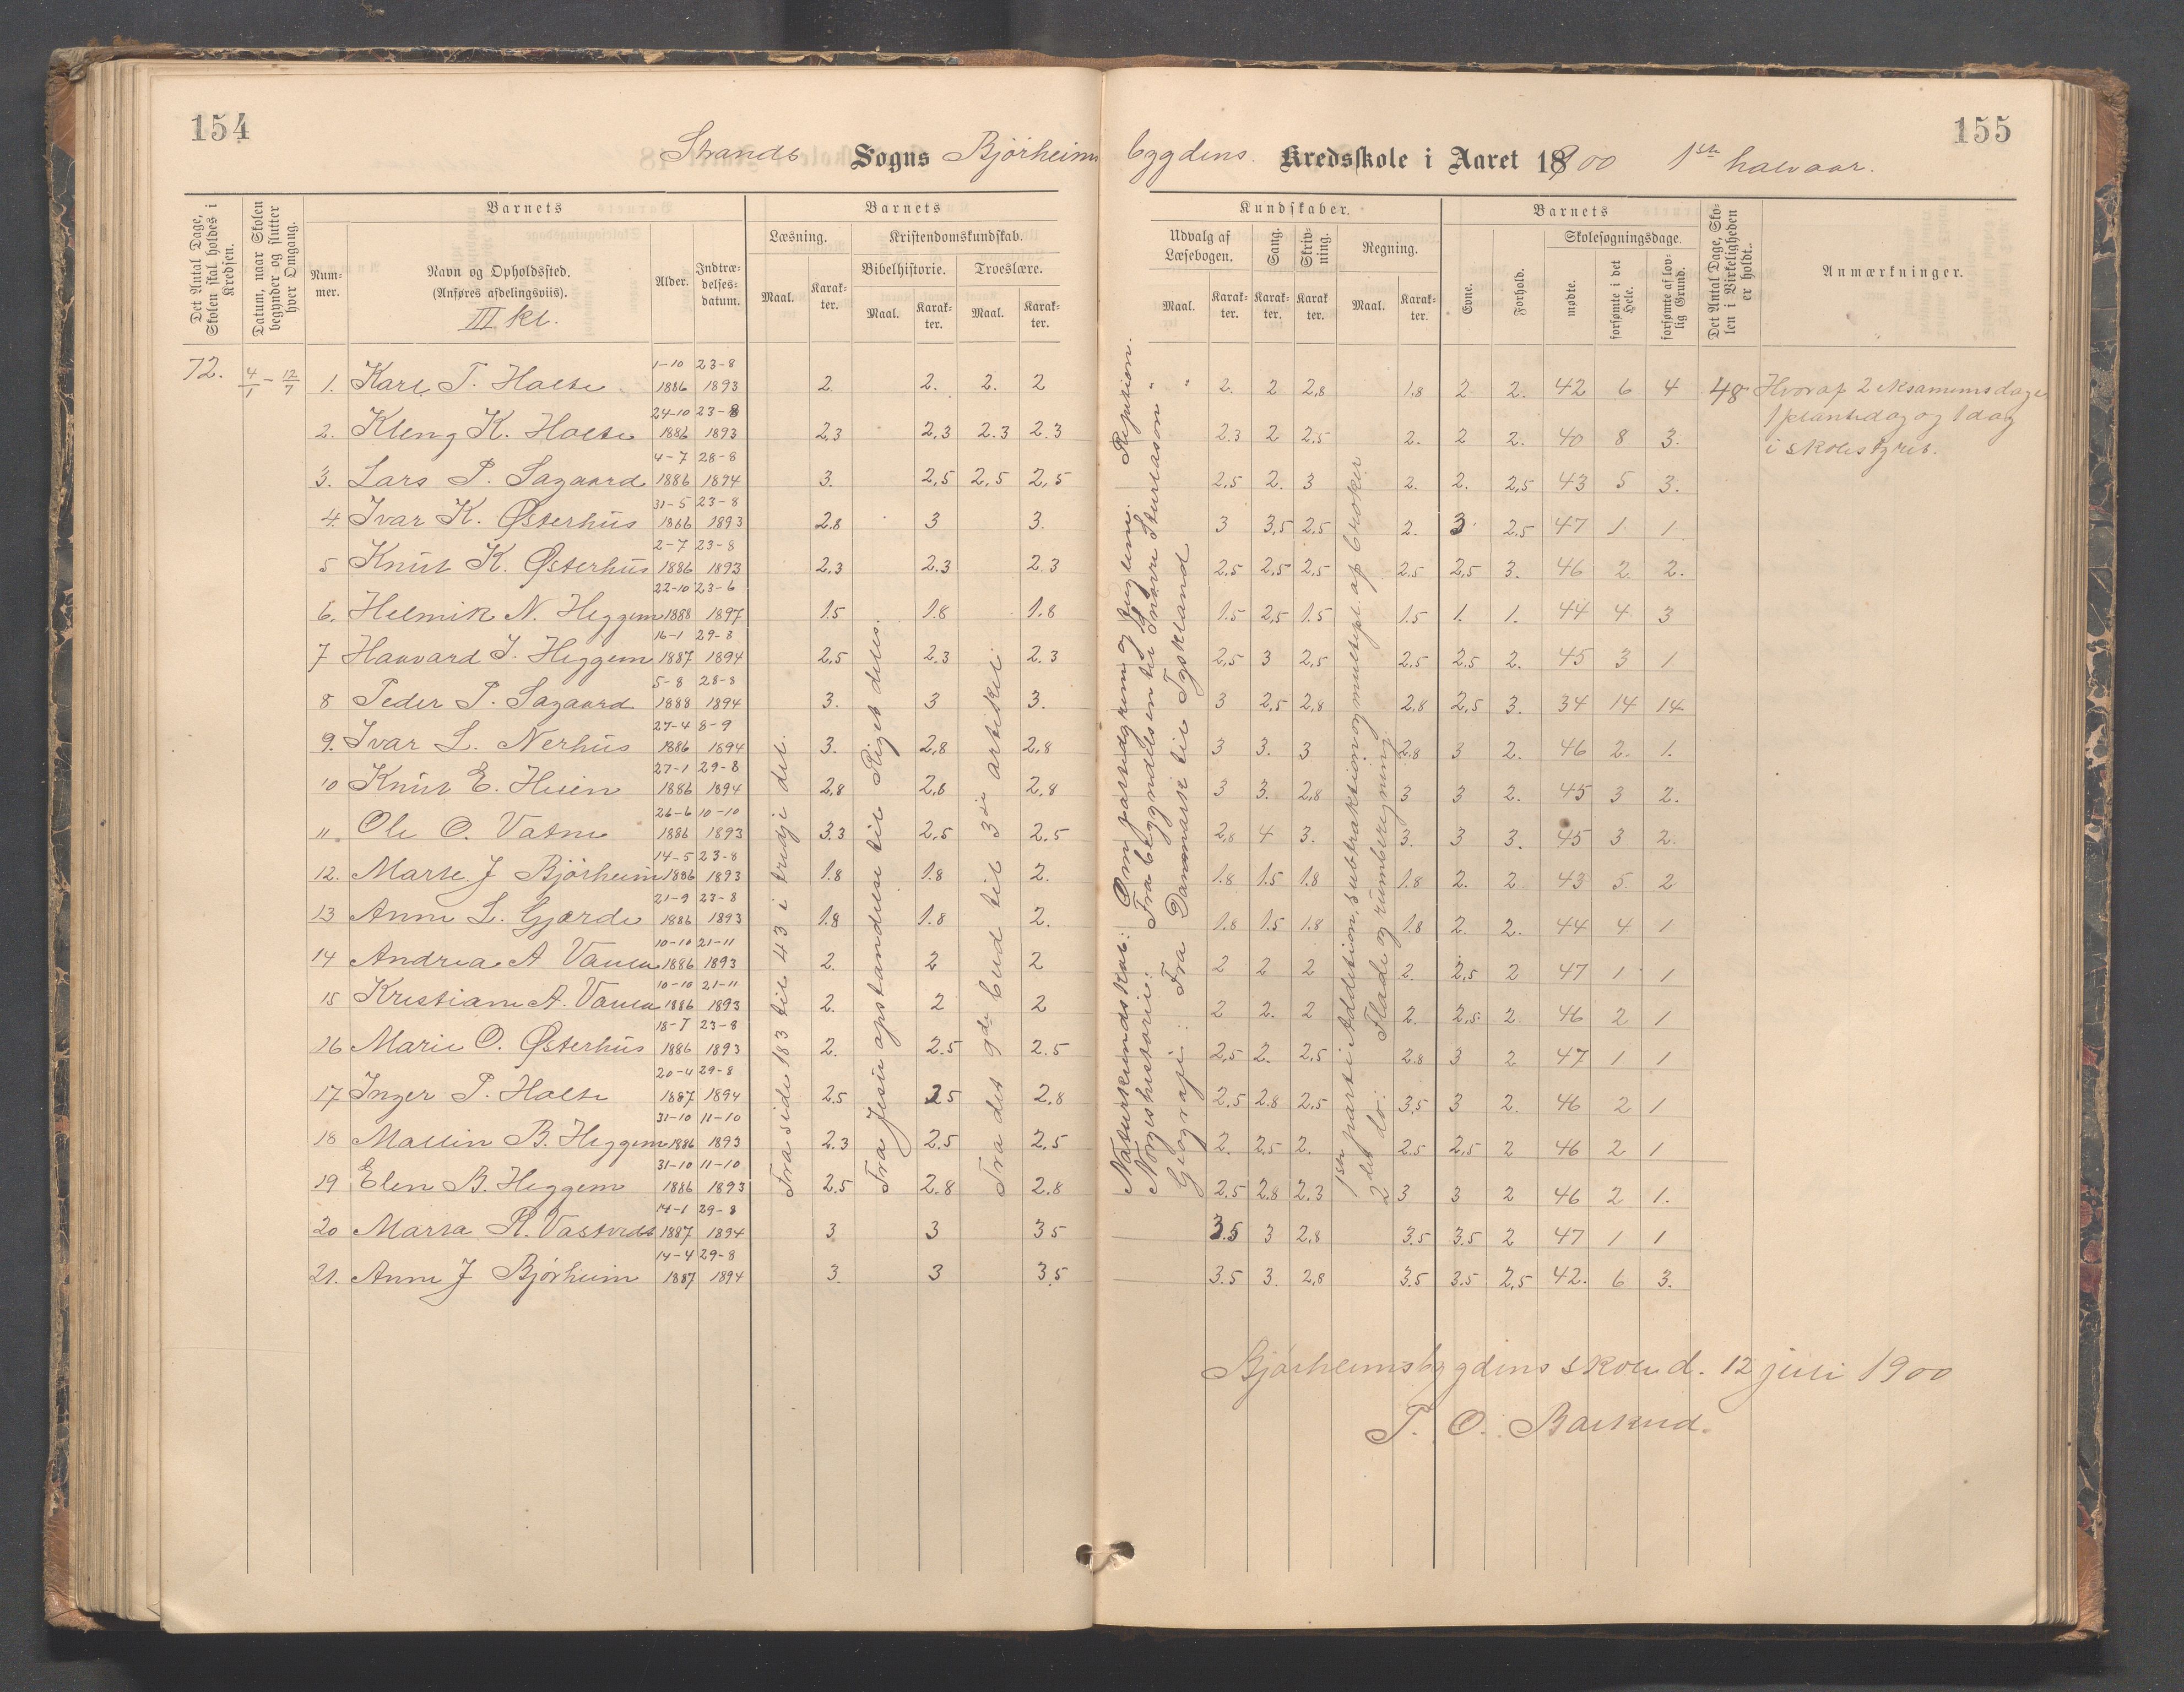 154
155
Strands Sogns Bjørheims bygdens Kredsskole i Aaret 1900 1ste halvaar.
Det Antal Dage, Skolen skal holdes i Kredsen.
Datum, naar Skolen begynder og slutter hver Omgang.
Barnets
Nummer.
Navn og Opholdssted.
(Anføres afdelingsviis).
III kl.
Alder.
Indtrædelsesdatum.
Barnets
Læsning.
Maal.
Karakter.
Kristendomskundskab.
Bibelhistorie.
Maal.
Karakter.
Troeslære.
Maal.
Karakter.
Kundskaber.
Udvalg af Læsebogen.
Maal.
Karakter.
Sang.
Karakter.
Skrivning.
Karakter.
Regning.
Maal.
Karakter.
Barnets
Evne.
Forhold.
Skolesøgningsdage.
mødte.
forsømte i det Hele.
forsømte af lovlig Grund.
Det Antal Dage, Skolen i Virkeligheden er holdt.
Anmærkninger.
72. 4/1 – 12/7
1. Karl T. Holte 1-10 1886 23-8 1893 2. 2. 2. 2 2. 2 2,8 1.8 2 2. 42 6 4 48 Hvoraf 2 eksamensdage
2. Kleng K. Holte 24-10 1886 23-8 1893 2,3 2,3 2.3 2.3 2.3 2 2.5 2. 2 2. 40 8 3. 1 plantedag og 1 dag
3. Lars P. Sagaard 4-7 1886 28-8 1894 3. 2,5 2,5 2,5 2,5 2. 3 2. 2. 2,5 43 5 3. i skolestyret.
4. Ivar K. Østerhus 31-5 1886 23-8 1893 2.8 3 3. 3 3,5 2,5 2. 3 2.5 47 1. 1
5 Knut K. Østerhus 2-7 1886 23-8 1893 2.3 2.3 2.3 2.5 2,5 2,5 2.5 2,5 3. 46 2 2.
6. Helmik N. Heggem 22-10 1888 23-6 1897 1.5 1.8 1.8 1.5 2,5 1.5 1.5 1. 1. 44 4. 3
7 Haavard I. Heggem 16-1 1887 29-8 1894 2,5 2.3 2.3 2,5 3 2,5 2,5 2.5 2. 45 3 1
8 Peder P. Sagaard 5-8 1888 28-8 1894 3. 3 3. 3 2,5 2,8 2.8 2,5 3. 34 14 14
9. Ivar L. Nerhus 27-4 1886 8-9 1894 3. 2,8 2,8 3 3. 3 2.8 3 2. 46 2. 1.
10 Knut E. Heien 27-1 1886 29-8 1894 2,8 2,8 2,8 3 3. 2,8 3 3 2. 45 3 2.
11. Ole O. Vatne 26-6 1886 10-10 1893 3.3 2.5 2.5 2,8 4 3. 3. 3 3. 45 3 2.
12. Marte J Bjørheim 14-5 1886 23-8 1893 1.8 1.8 2. 1.8 1.5 1.8 1.8 2. 2 43 5. 2
13 Anne L. Gjærde 21-9 1886 23-8 1893 1.8 1.8 2. 1.8 1.5 1.8 1.8 2. 2. 44 4 1
14 Andrea A 10-10 1886 21-11 1893 2. 2 2 2 2 2 2. 2,5 2 47 1 1
15 Kristiane A. 10-10 1886 21-11 1893 2. 2 2 2 2. 2 2. 2,5 2. 46 2 1
16 Marie O. Østerhus 18-7 1886 23-8 1893 2. 2.5 2.5 2,5 2. 2,5 2.8 3 2 47 1 1
17 Inger P. Holte 20-4 1887 29-8 1894 2.5 2.5 2.8 2,5 2.8 2,5 3,5 3 2. 46 2 1
18 Mallin B. Heggem 31-10 1886 11-10 1893 2.3 2.5 2,5 2. 2.5 2. 2.5 2,5 2 46 2 1
19 Elen B. Heggem 31-10 1886 11-10 1893 2.5 2.8 2.8 2.5 2.8 2.3 3 3 2 46 2 1.
20 Marta R. Vastvedt 14-1 1887 29-8 1894 3 3 3.5 3.5 3 2.8 3.5 3.5 2 47 1 1
21. Anne J Bjørheim 14-4 1887 29-8 1894 3. 3 3.5 3.5 3. 2,8 3.5 3.5 2,5 42. 6 3.
Fra side 183 til 43 i tredje del.
Fra Jesu opstandelse til Riget deles.
Fra det 9de bud til 3die artikel.
Naturkundskab: Om pattedyrene og fuglene. Repetition.
Norgeshistorie: Fra begyndelsen til Snorre Sturlason " "
Geografi: Fra Danmark til Tyskland
1ste parti: Addition, subtraktion og multipl. af brøker
2det do: Flade og rumberegning.
Bjørheimsbygdens skole d. 12 juli 1900
T. O. Barkved.